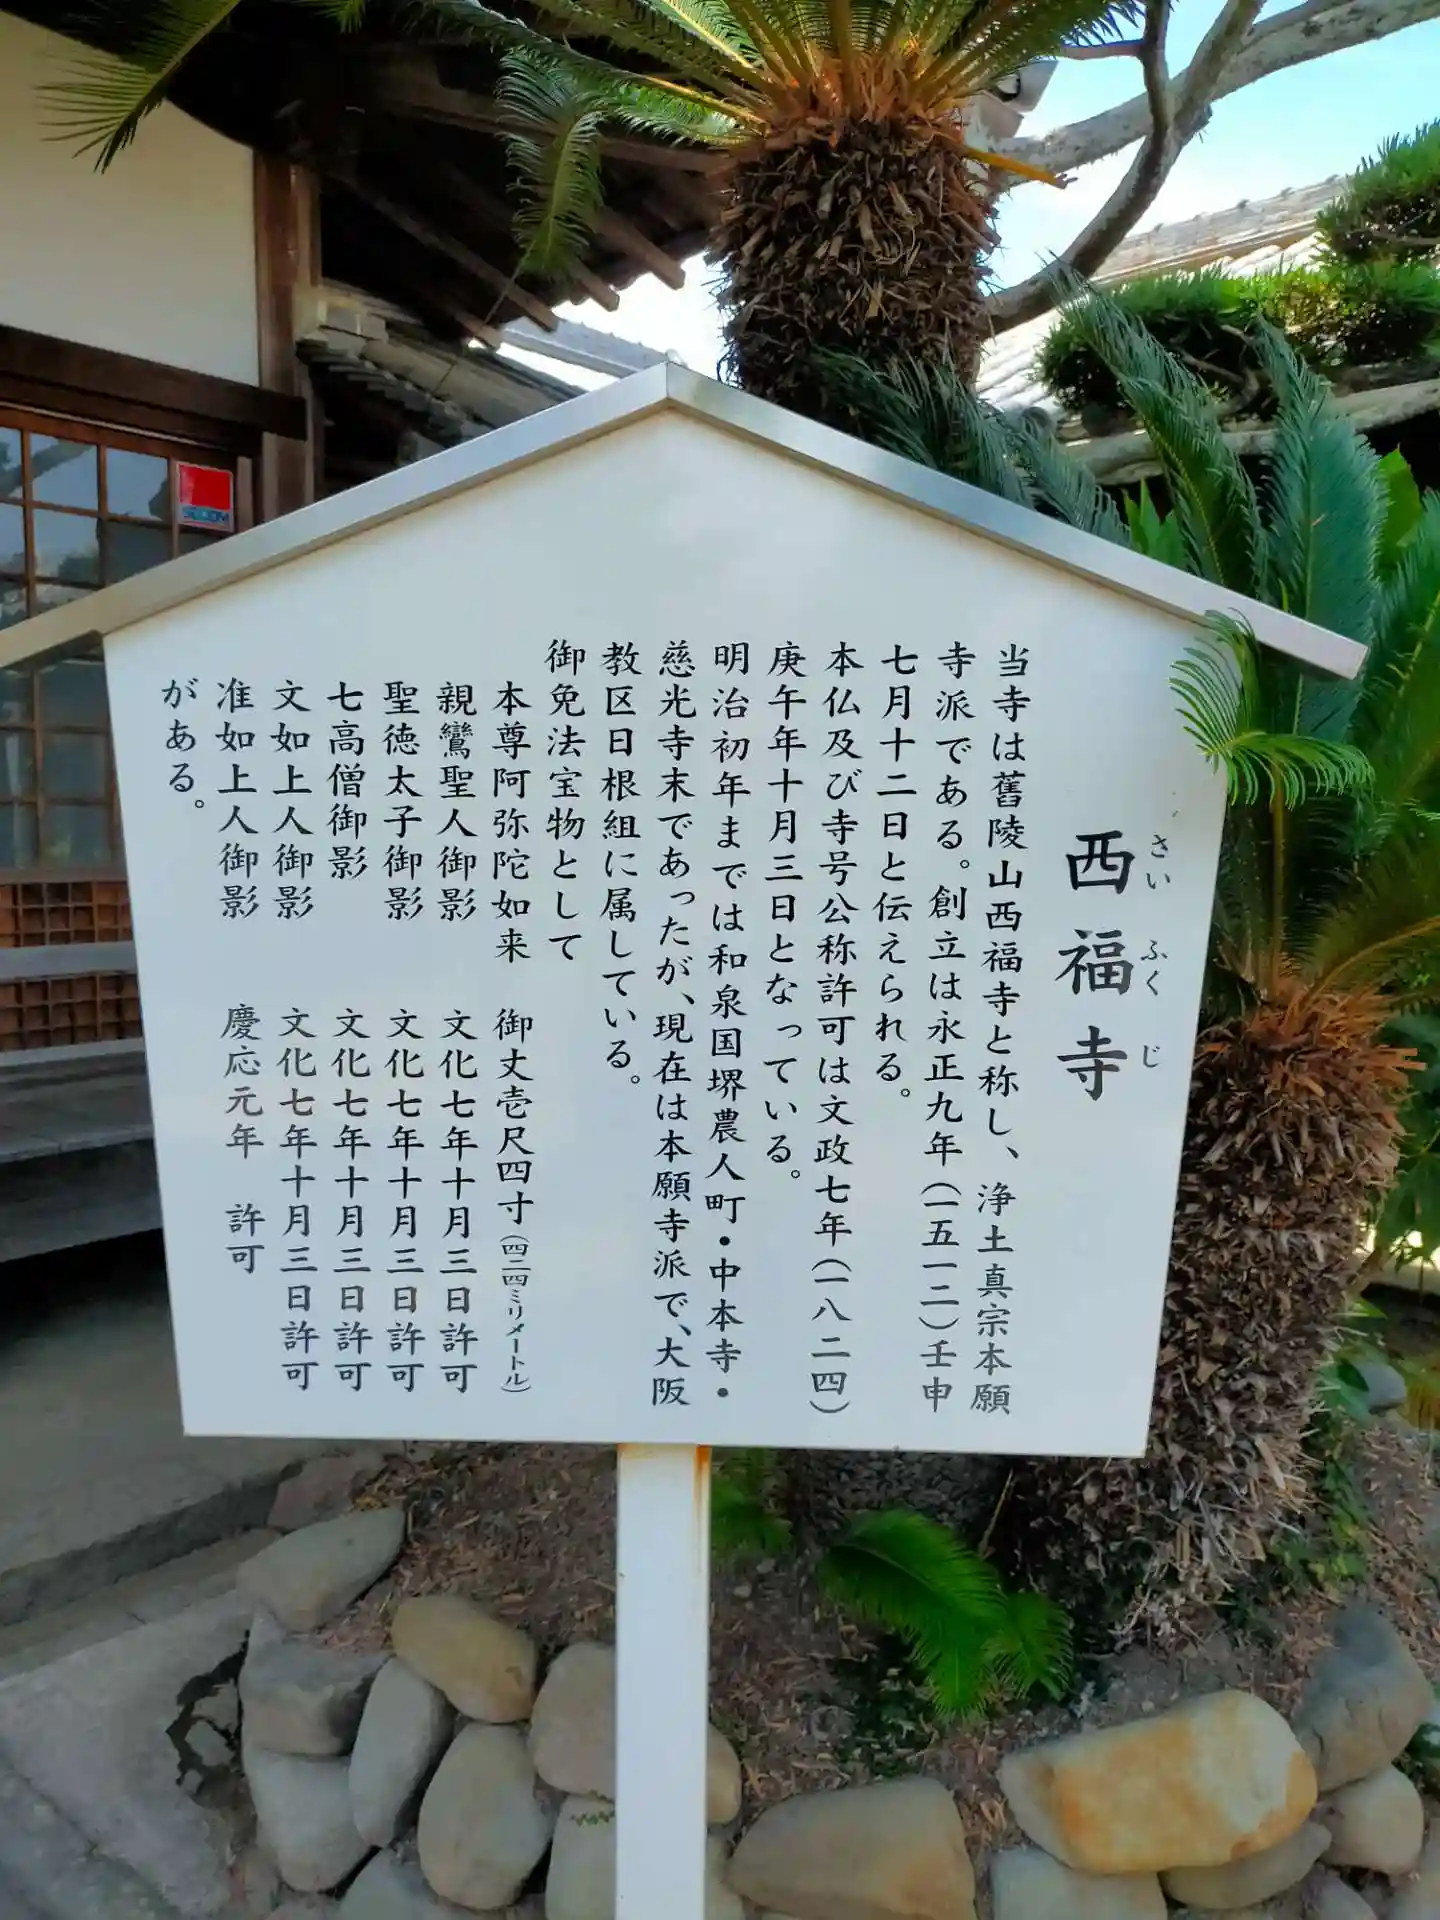 西福寺
さい ふく じ
当寺は舊陵山西福寺と称し、浄土真宗本願
寺派である。創立は永正九年(一五一二)壬申
七月十二日と伝えられる。
本仏及び寺号公称許可は文政七年(一八二四)
庚午年十月三日となっている。
明治初年までは和泉国堺農人町・中本寺・
慈光寺末であったが、現在は本願寺派で、大阪
教区日根組に属している。
御免法宝物として
本尊阿弥陀如来 御丈壱尺四寸(四二四ミリメートル)
親鸞聖人御影 文化七年十月三日許可
聖徳太子御影 文化七年十月三日許可
七高僧御影 文化七年十月三日許可
文如上人御影 文化七年十月三日許可
准如上人御影 慶応元年 許可
がある。
SECOM